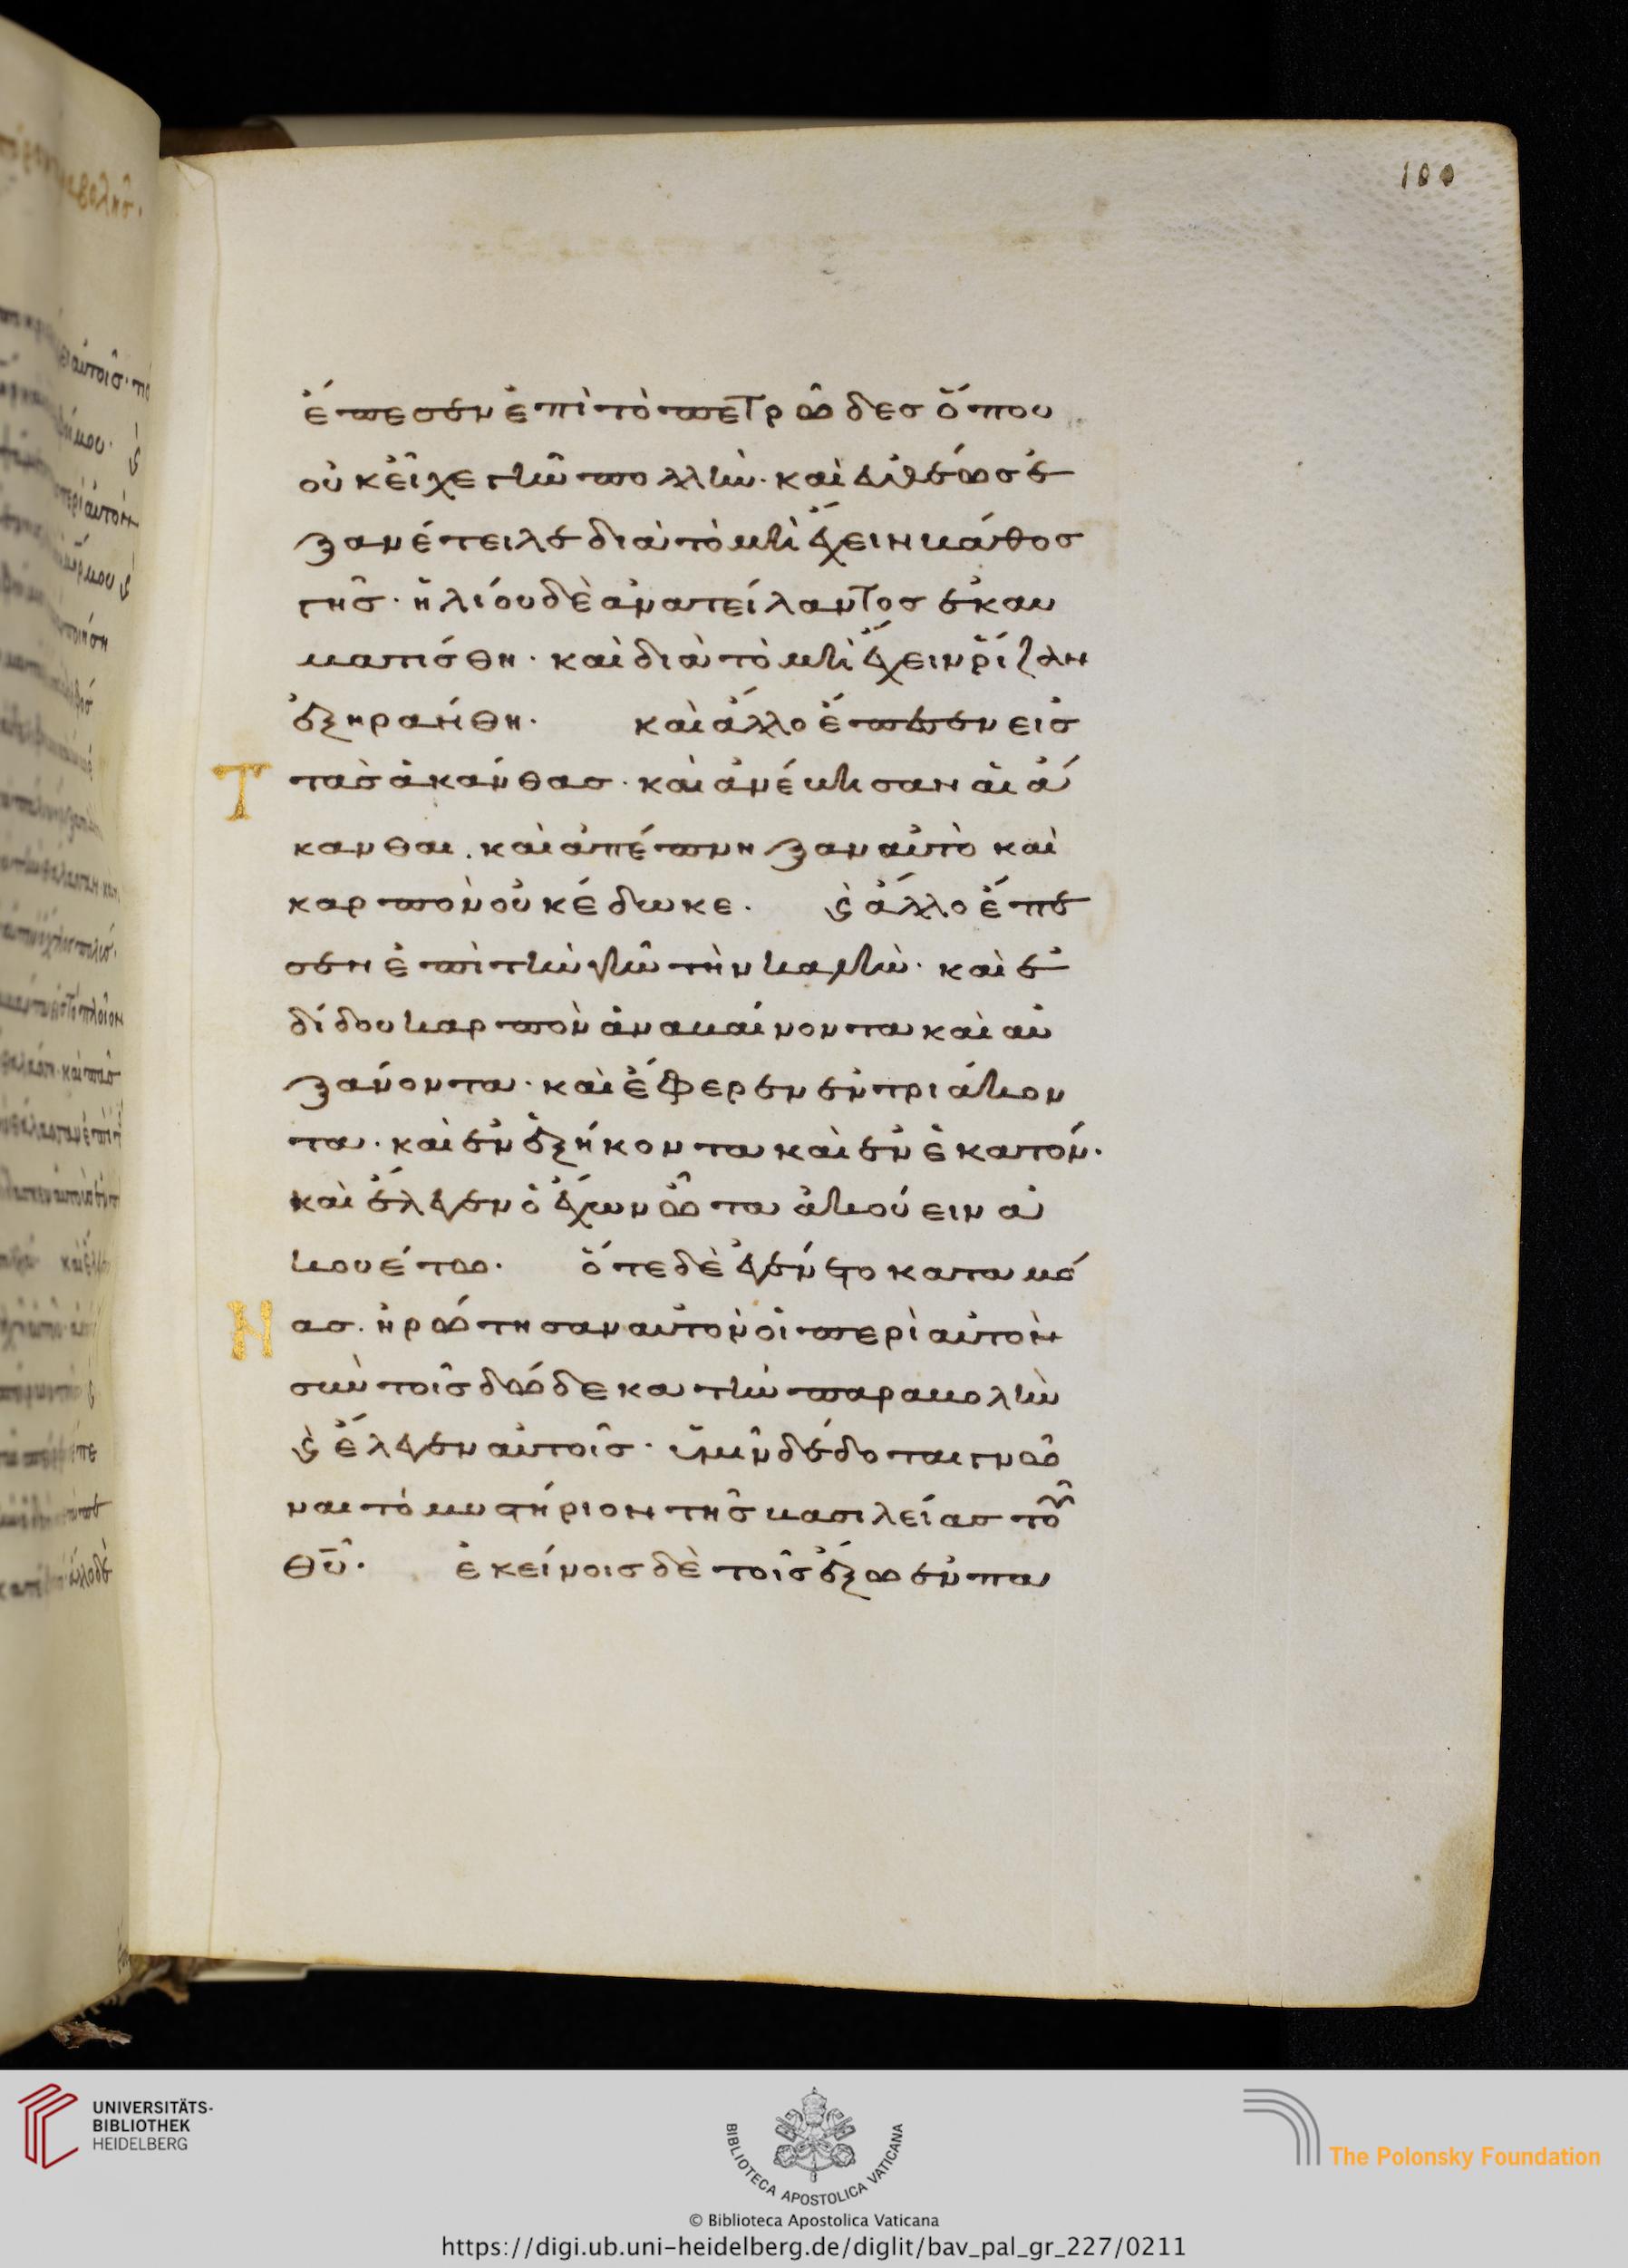 100
ἔπεσεν ἐπὶ τὸ πετρῶδες ὅπου
οὐκ εἶχε γῆν πολλήν· καὶ εὐθέως ἐ
ξανέτειλε διὰ τὸ μὴ ἔχειν βάθος
γῆς· ἡλίου δὲ ἀνατείλαντος ἐκαυ
ματίσθη· καὶ διὰ τὸ μὴ ἔχειν ῥίζαν
ἐξηράνθη· καὶ ἄλλο ἔπεσεν εἰς
τὰς ἀκάνθας· καὶ ἀνέβησαν αἱ ἄ
κανθαι. καὶ ἀπέπνηξαν αὐτὸ καὶ
καρπὸν οὐκ έδωκε. ϗ ἄλλο ἔπε
σεν ἐπὶ τὴν γῆν τὴν καλὴν· καὶ ἐ
δίδου καρπὸν ἀναβαίνοντα καὶ αὐ
ξάνοντα· καὶ ἔφερεν ἐν τριάκον
τα· καὶ ἐν ἑξήκοντα καὶ ἐν ἑκατόν.
καὶ ἔλεγεν ὁ ἔχων ὦτα ἀκούειν ἀ
κουέτω. ὅτε δὲ ἐγένετο καταμό
Τ
νας. ἠρώτησαν αὐτὸν οἱ περὶ αὐτὸν
σὺν τοῖς δώδεκα τὴν παραβολὴν
ϗ ἔλεγεν αὐτοῖς· ὑμῖν δέδοται γνῶ
ναι τὸ μυστήριον τῆς βασιλείας τοῦ
θῦ. ἐκείνοις δὲ τοῖς ἔξω ἐν πα
UNIVERSITÄTS-
BIBLIOTHEK
HEIDELBERG
BIBLIOTECA APOSTOLICA VATICANA
The Polonsky Foundation
© Biblioteca Apostolica Vaticana
https://digi.ub.uni-heidelberg.de/diglit/bav_pal_gr_227/0211